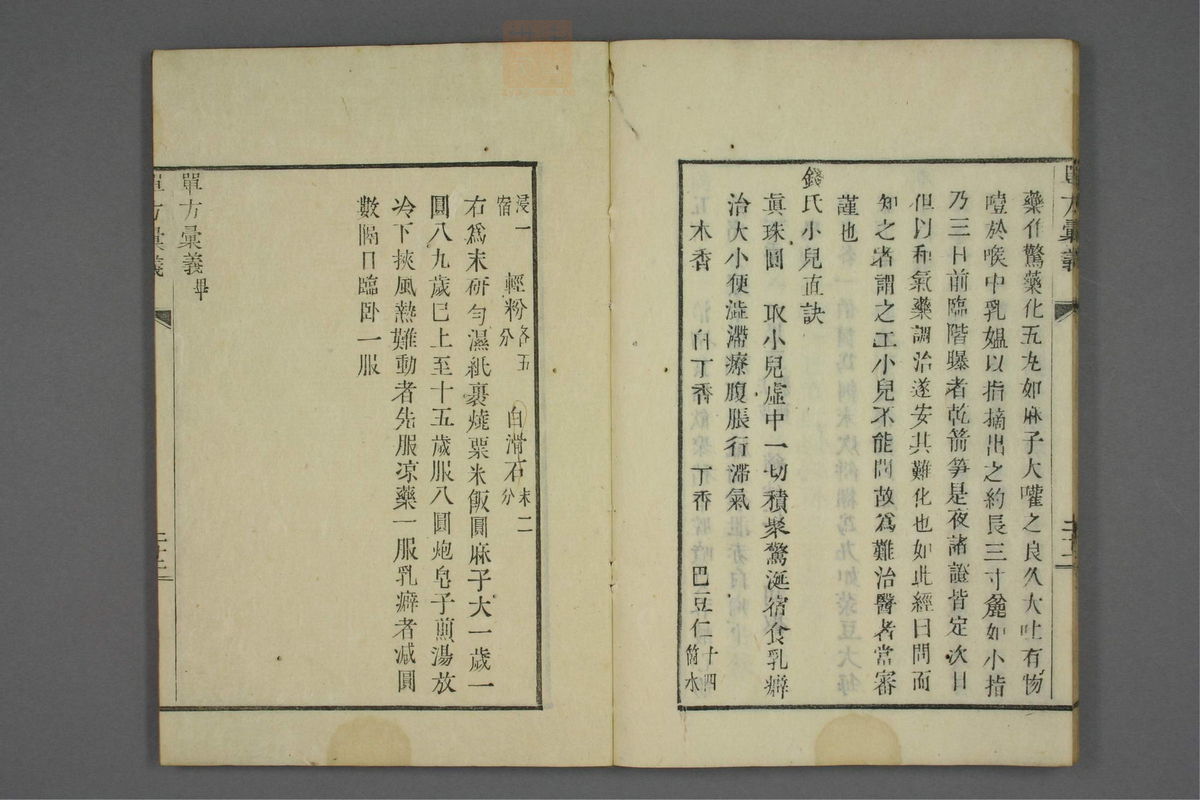 藥作驚藥化五丸如麻子大嚾之良久大吐有物
噎於喉中乳媪以指摘出之約長三寸麄如小指
乃三日前臨階曝者乾箭笋是夜諸證皆定次日
但以和氣藥調治遂安其難化也如此經曰問而
知之者謂之工小兒不能問故爲難治醫者當審
謹也
錢氏小兒直訣
眞珠圓 取小兒虛中一切積聚驚涎宿食乳癖
治大小便澁滯療腹脹行滯氣
木香 白丁香 丁香 巴豆仁十四箇水
單方彙義
二十二
浸一宿 輕粉各五分 白滑石末二分
右爲末研勻濕紙裹燒粟米飯圓麻子大一歲一
圓八九歲巳上至十五歲服八圓炮皂子煎湯放
冷下挾風熱難動者先服凉藥一服乳癖者减圓
數隔日臨卧一服
單方彙義畢
單方彙義
二十二